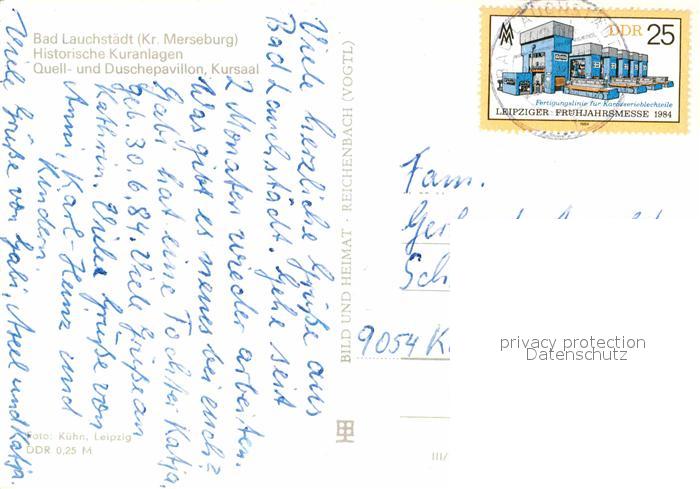 Bad Lauchstädt (Kr. Merseburg)
Historische Kuranlagen
Quell- und Duschepavillon, Kursaal
Viele herzliche Grüße aus
Bad Lauchstädt. Gehe seit
2 Monaten wieder arbeiten.
Was gibt es neues bei euch?
Gabi hat eine Tochter Katja,
geb. 30.6.84. Viele Grüße an
Kathrin. Viele Grüße von
Anni, Karl-Heinz und
Kindern.
Viele Grüße von Gabi, Axel und Katja.
Foto: Kühn, Leipzig
DDR 0,25 M
BILD UND HEIMAT · REICHENBACH (VOGTL)
III/
DDR 25
Fertigungslinie für Karosserieblechteile
LEIPZIGER FRÜHJAHRSMESSE 1984
1984
Fam.
9054 K.
privacy protection
Datenschutz